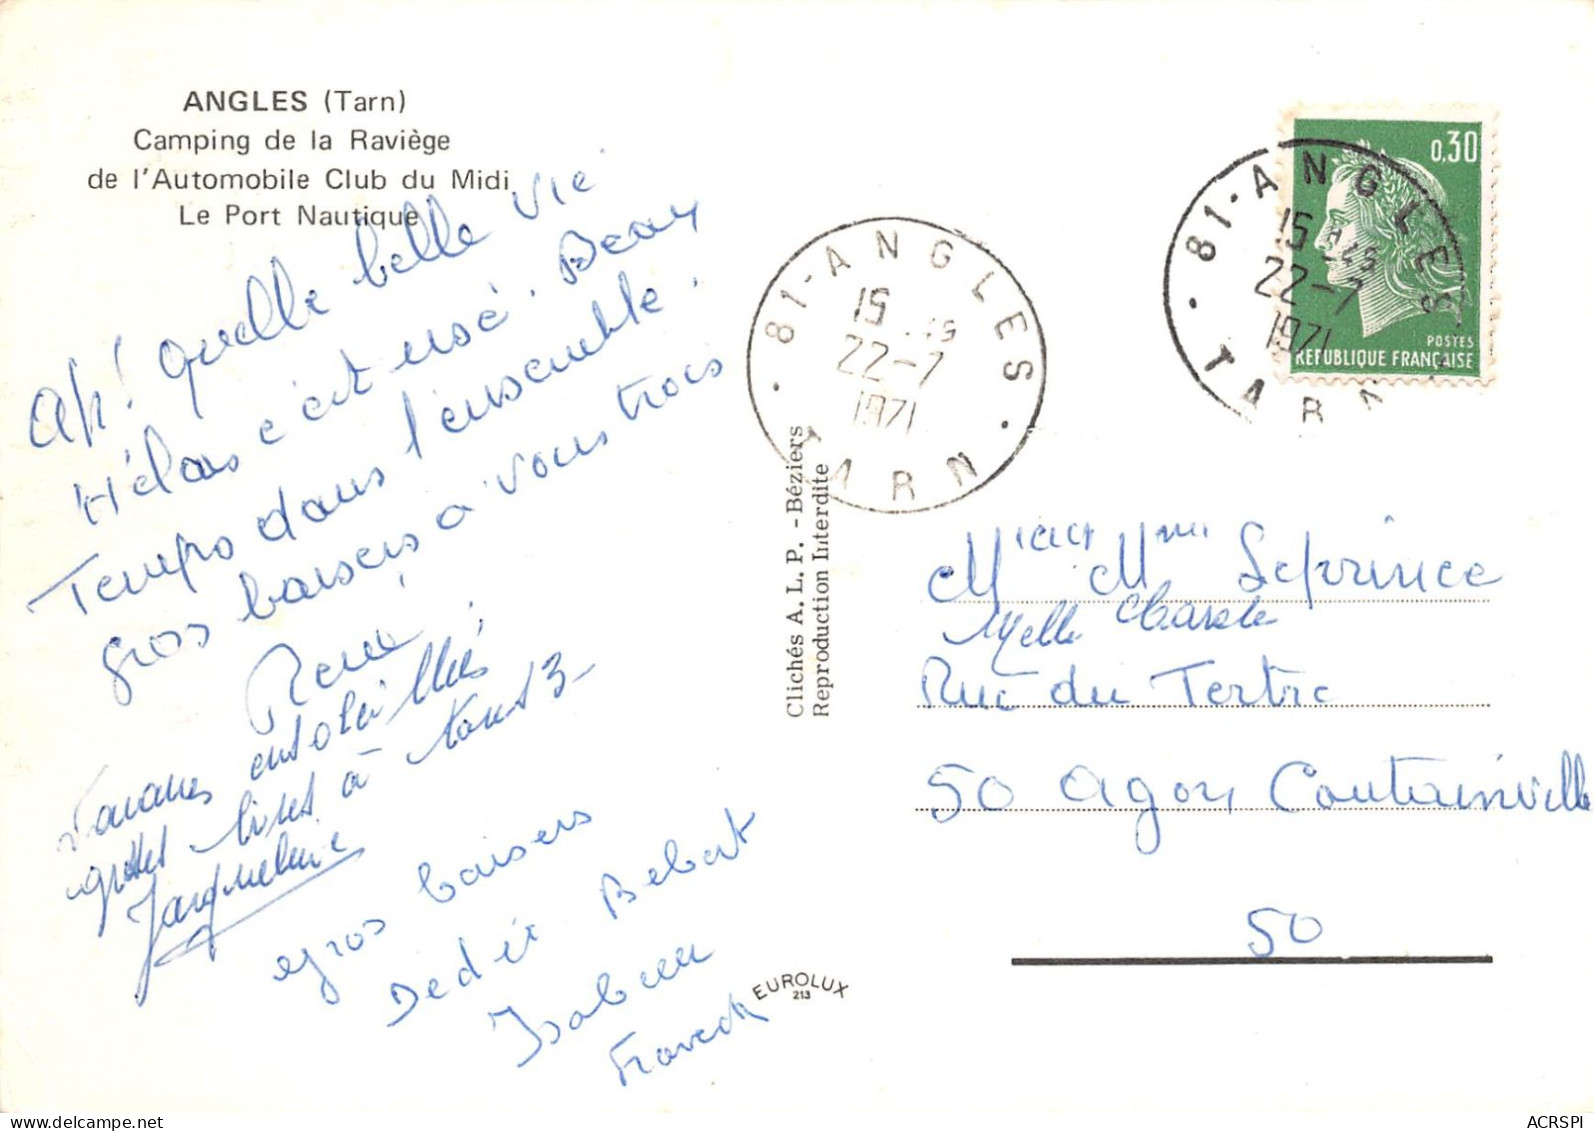 ANGLES (Tarn)
Camping de la Raviège
de l'Automobile Club du Midi
Le Port Nautique
Ah! quelle belle vie
Hélas c'est usé. Beau
Temps dans l'ensemble.
gros baisers à vous trois
René
ensoleillés
grosses bises à vous 3
Jacqueline
gros baisers
Dédé et Bebert
Isabelle
Franck
EUROLUX
213
Clichés A. L. P. - Béziers
Reproduction Interdite
81-ANGLES
15
22-7
1971
TARN
81-ANGLES
15
22-7
1971
TARN
0,30
POSTES
REPUBLIQUE FRANÇAISE
M et Mme Leprince
Melle
Rue du Tertre
50 Agon Coutainville
50
ACRSPI